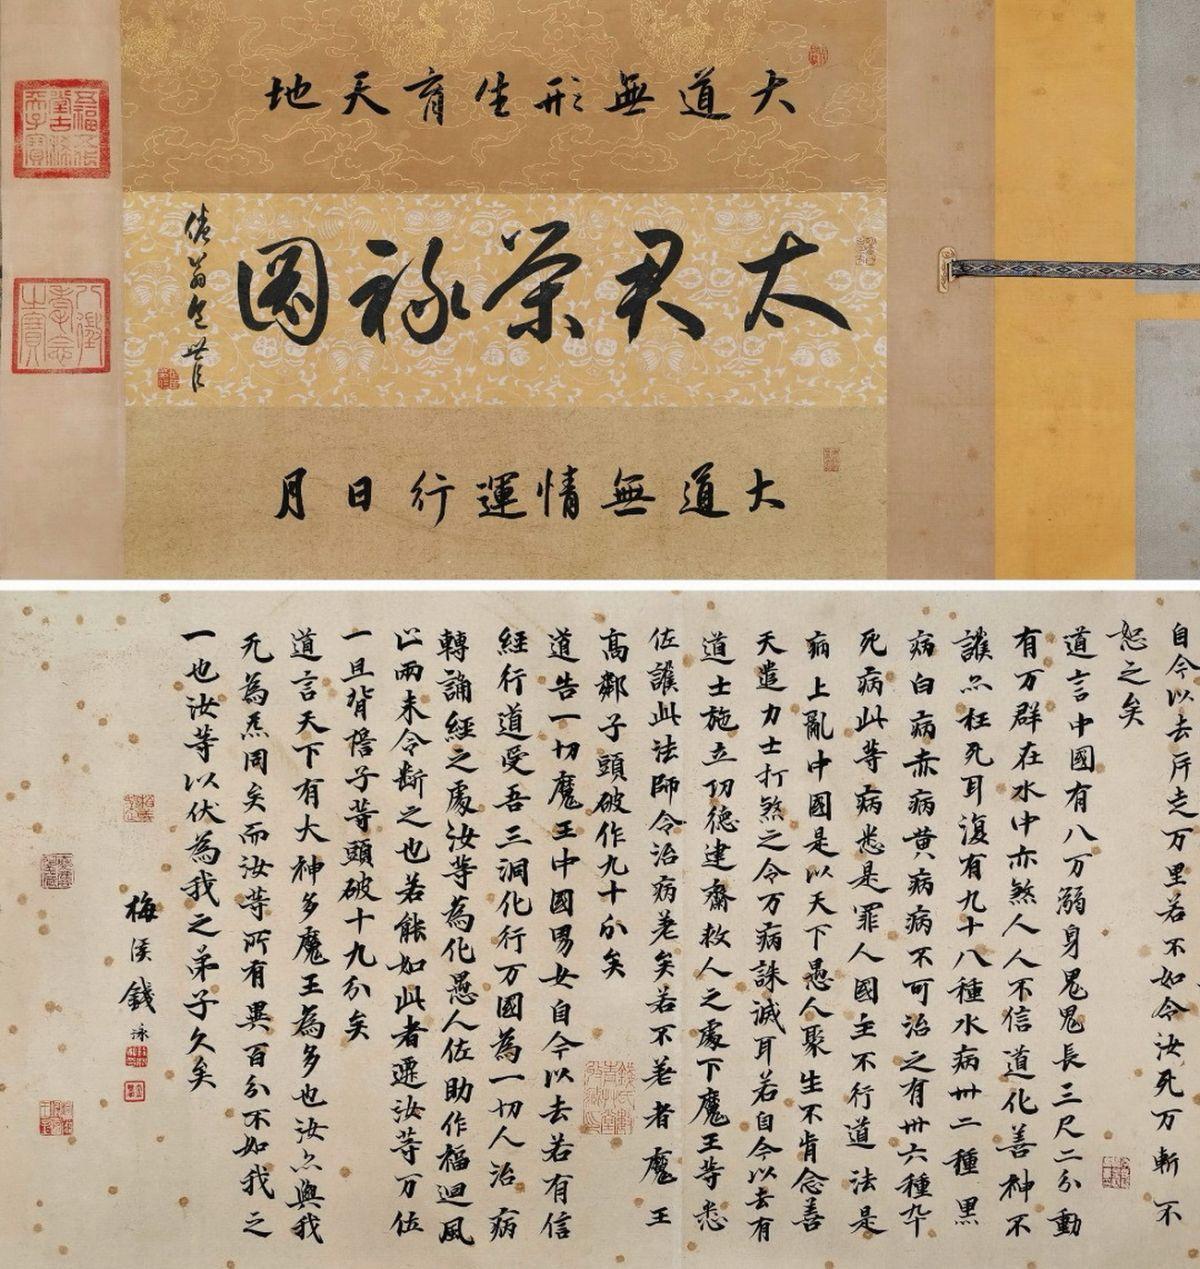 大道無形生育天地
太君榮祿圖
倦翁包世臣
大道無情運行日月
五福五代堂古稀天子寶
八徵耄念之寶
自今以去斥走万里若不如令汝死万斬不
恕之矣
道言中國有八万溺身鬼鬼長三尺二分動
有万群在水中亦煞人人不信道化善神不
護亦枉死耳復有九十八種水病卅二種黑
病白病赤病黄病病不可治之有卅六種卒
死病此等病悉是罪人國主不行道法是
病上亂中國是以天下愚人聚生不肯念善
天遣力士打煞之令万病誅滅耳若自今以去有
道士施立功德建齋救人之處下魔王等悉
佐護此法師令治病差矣若不差者魔王
高鄰子頭破作九十分矣
道告一切魔王中國男女自今以去若有信
經行道受吾三洞化行万國為一切人治病
轉誦經之處汝等為化愚人佐助作福迴風
亡雨未令斷之也若能如此者遷汝等万位
一旦背子等頭破十九分矣
道言天下有大神多魔王為多也汝亦與我
无為炁同矣而汝等所有異百分不如我之
一也汝等以伏為我之弟子久矣
梅溪錢泳